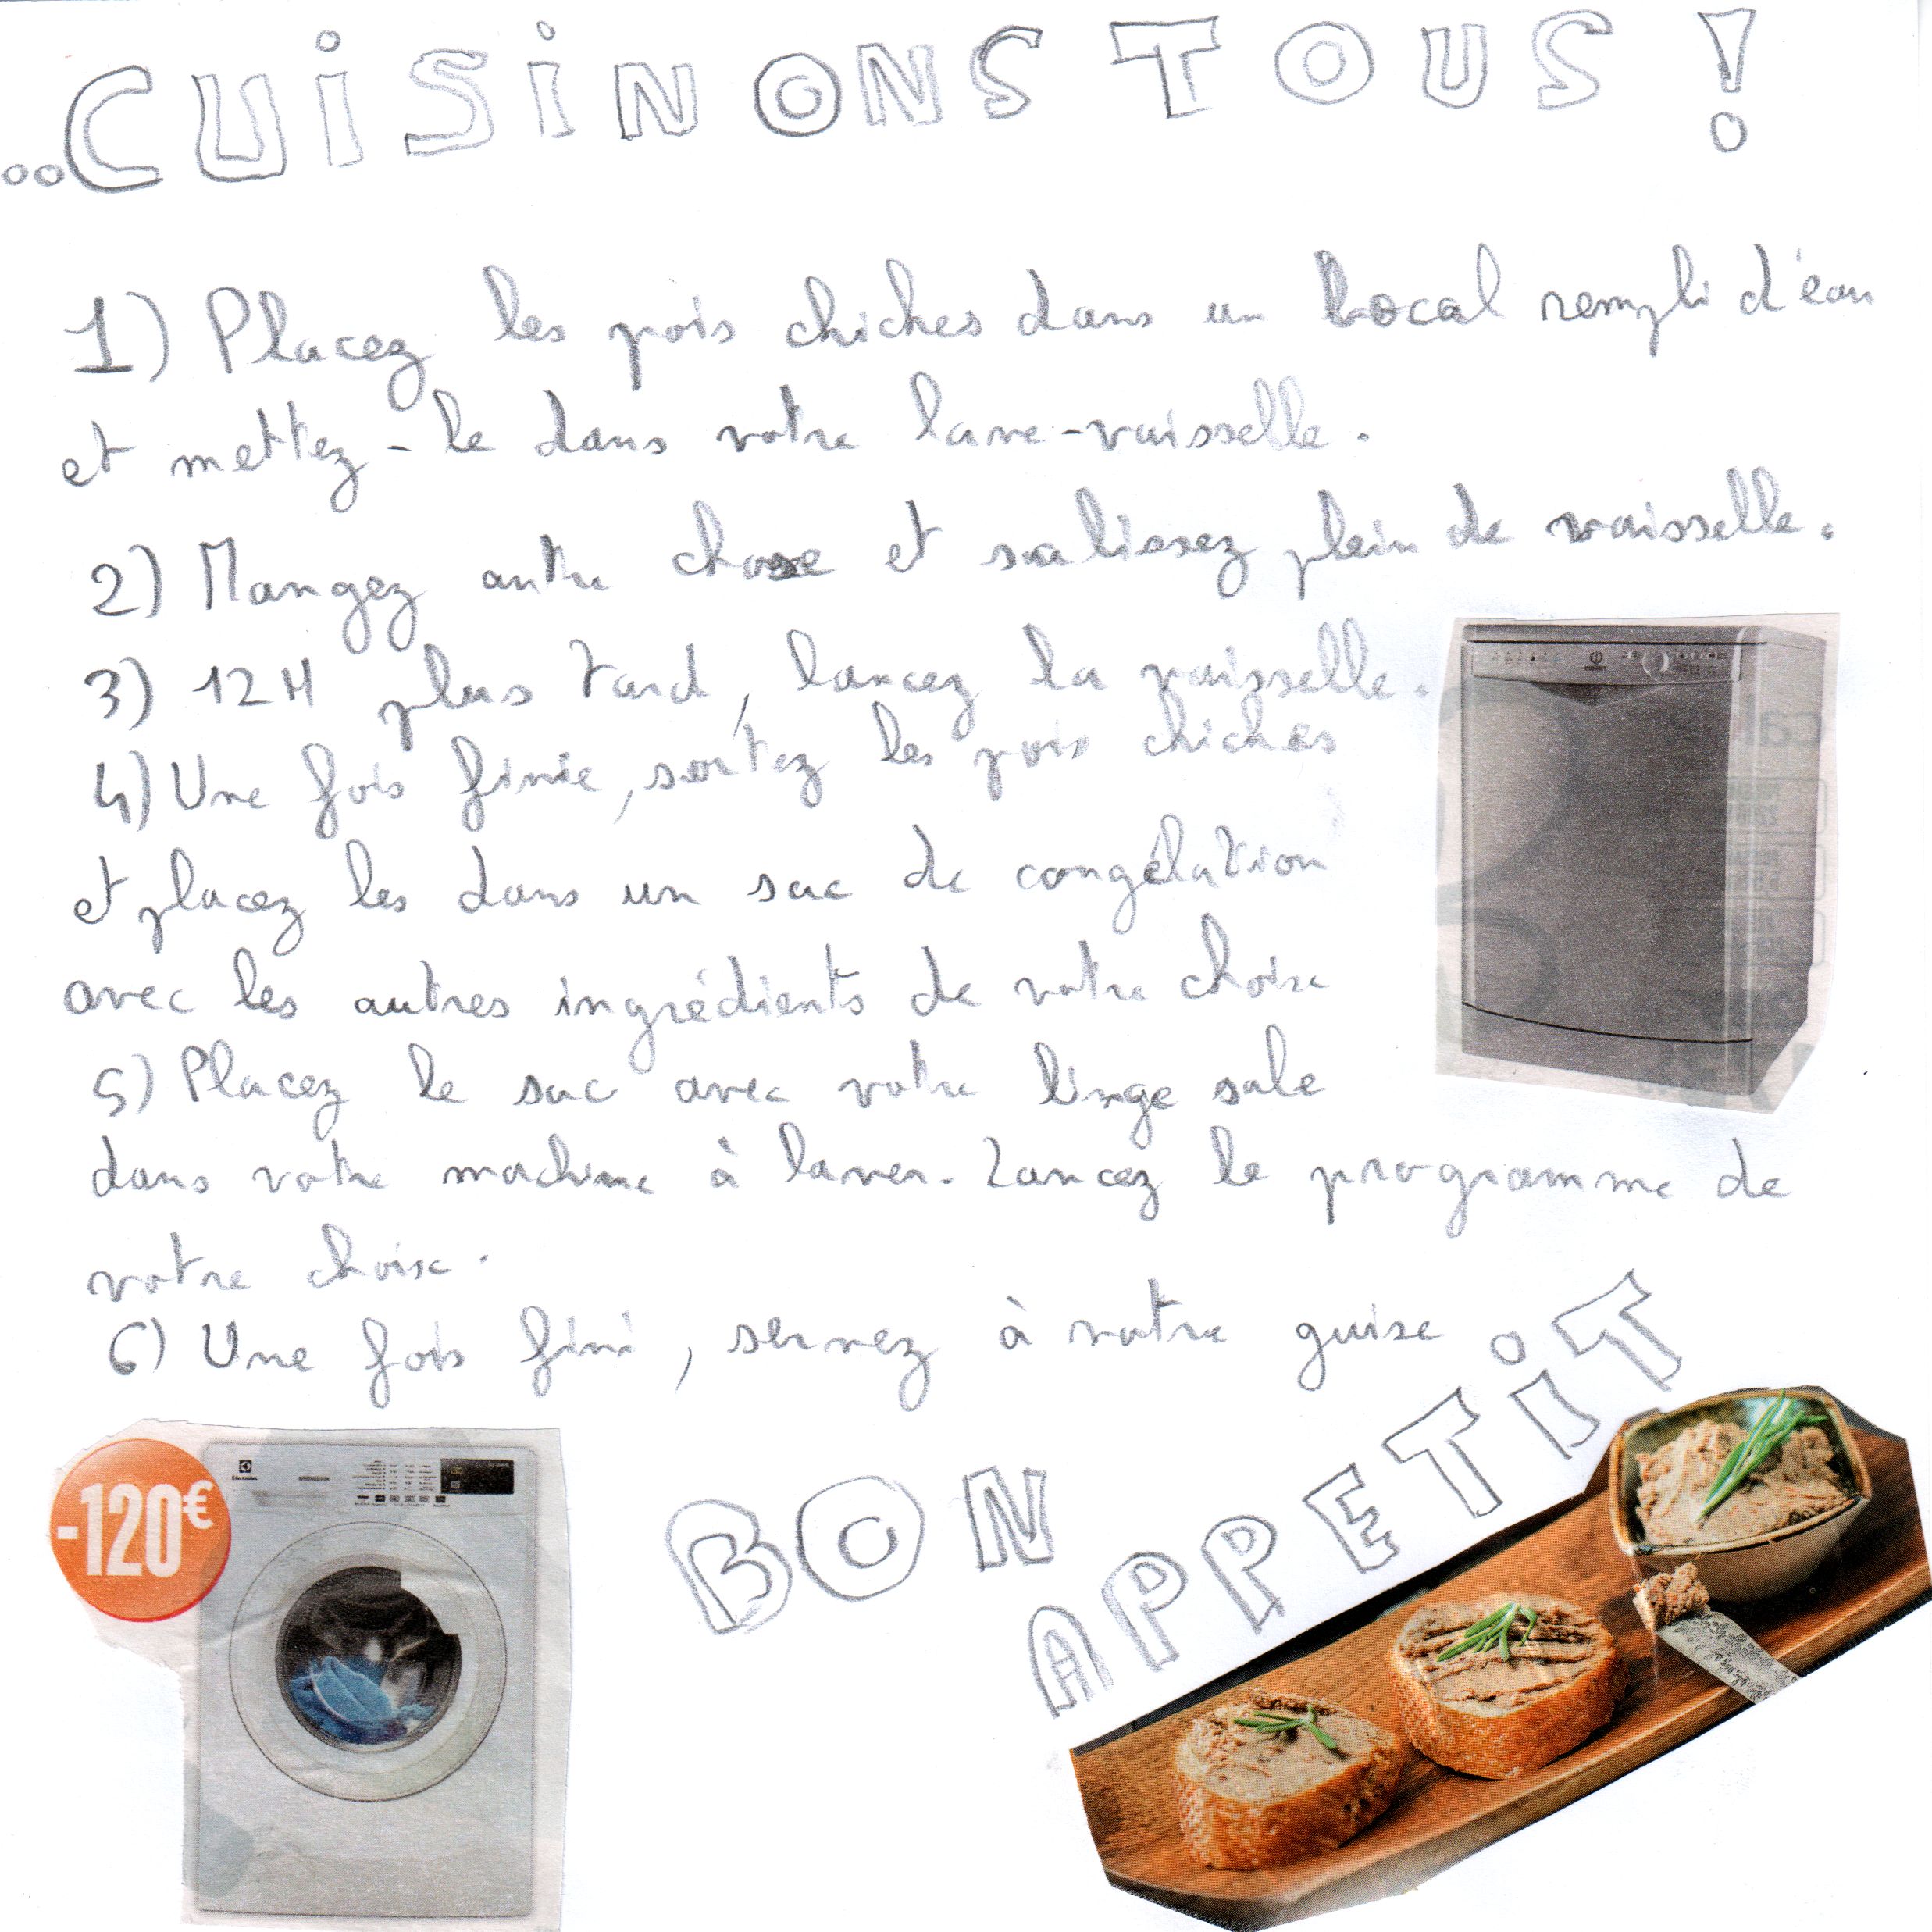 ..CUiSiNONS TOUS !
1) Placez les pois chiches dans un bocal rempli d'eau
et mettez-le dans votre lave-vaisselle.
2) Mangez autre chose et salissez plein de vaisselle.
3) 12H plus tard, lancez la vaisselle.
4) Une fois finie, sortez les pois chiches
et placez les dans un sac de congélation
avec les autres ingrédients de votre choix
5) Placez le sac avec votre linge sale
dans votre machine à laver. Lancez le programme de
votre choix.
6) Une fois fini, servez à votre guise
BON
APPETiT
-120€
Electrolux